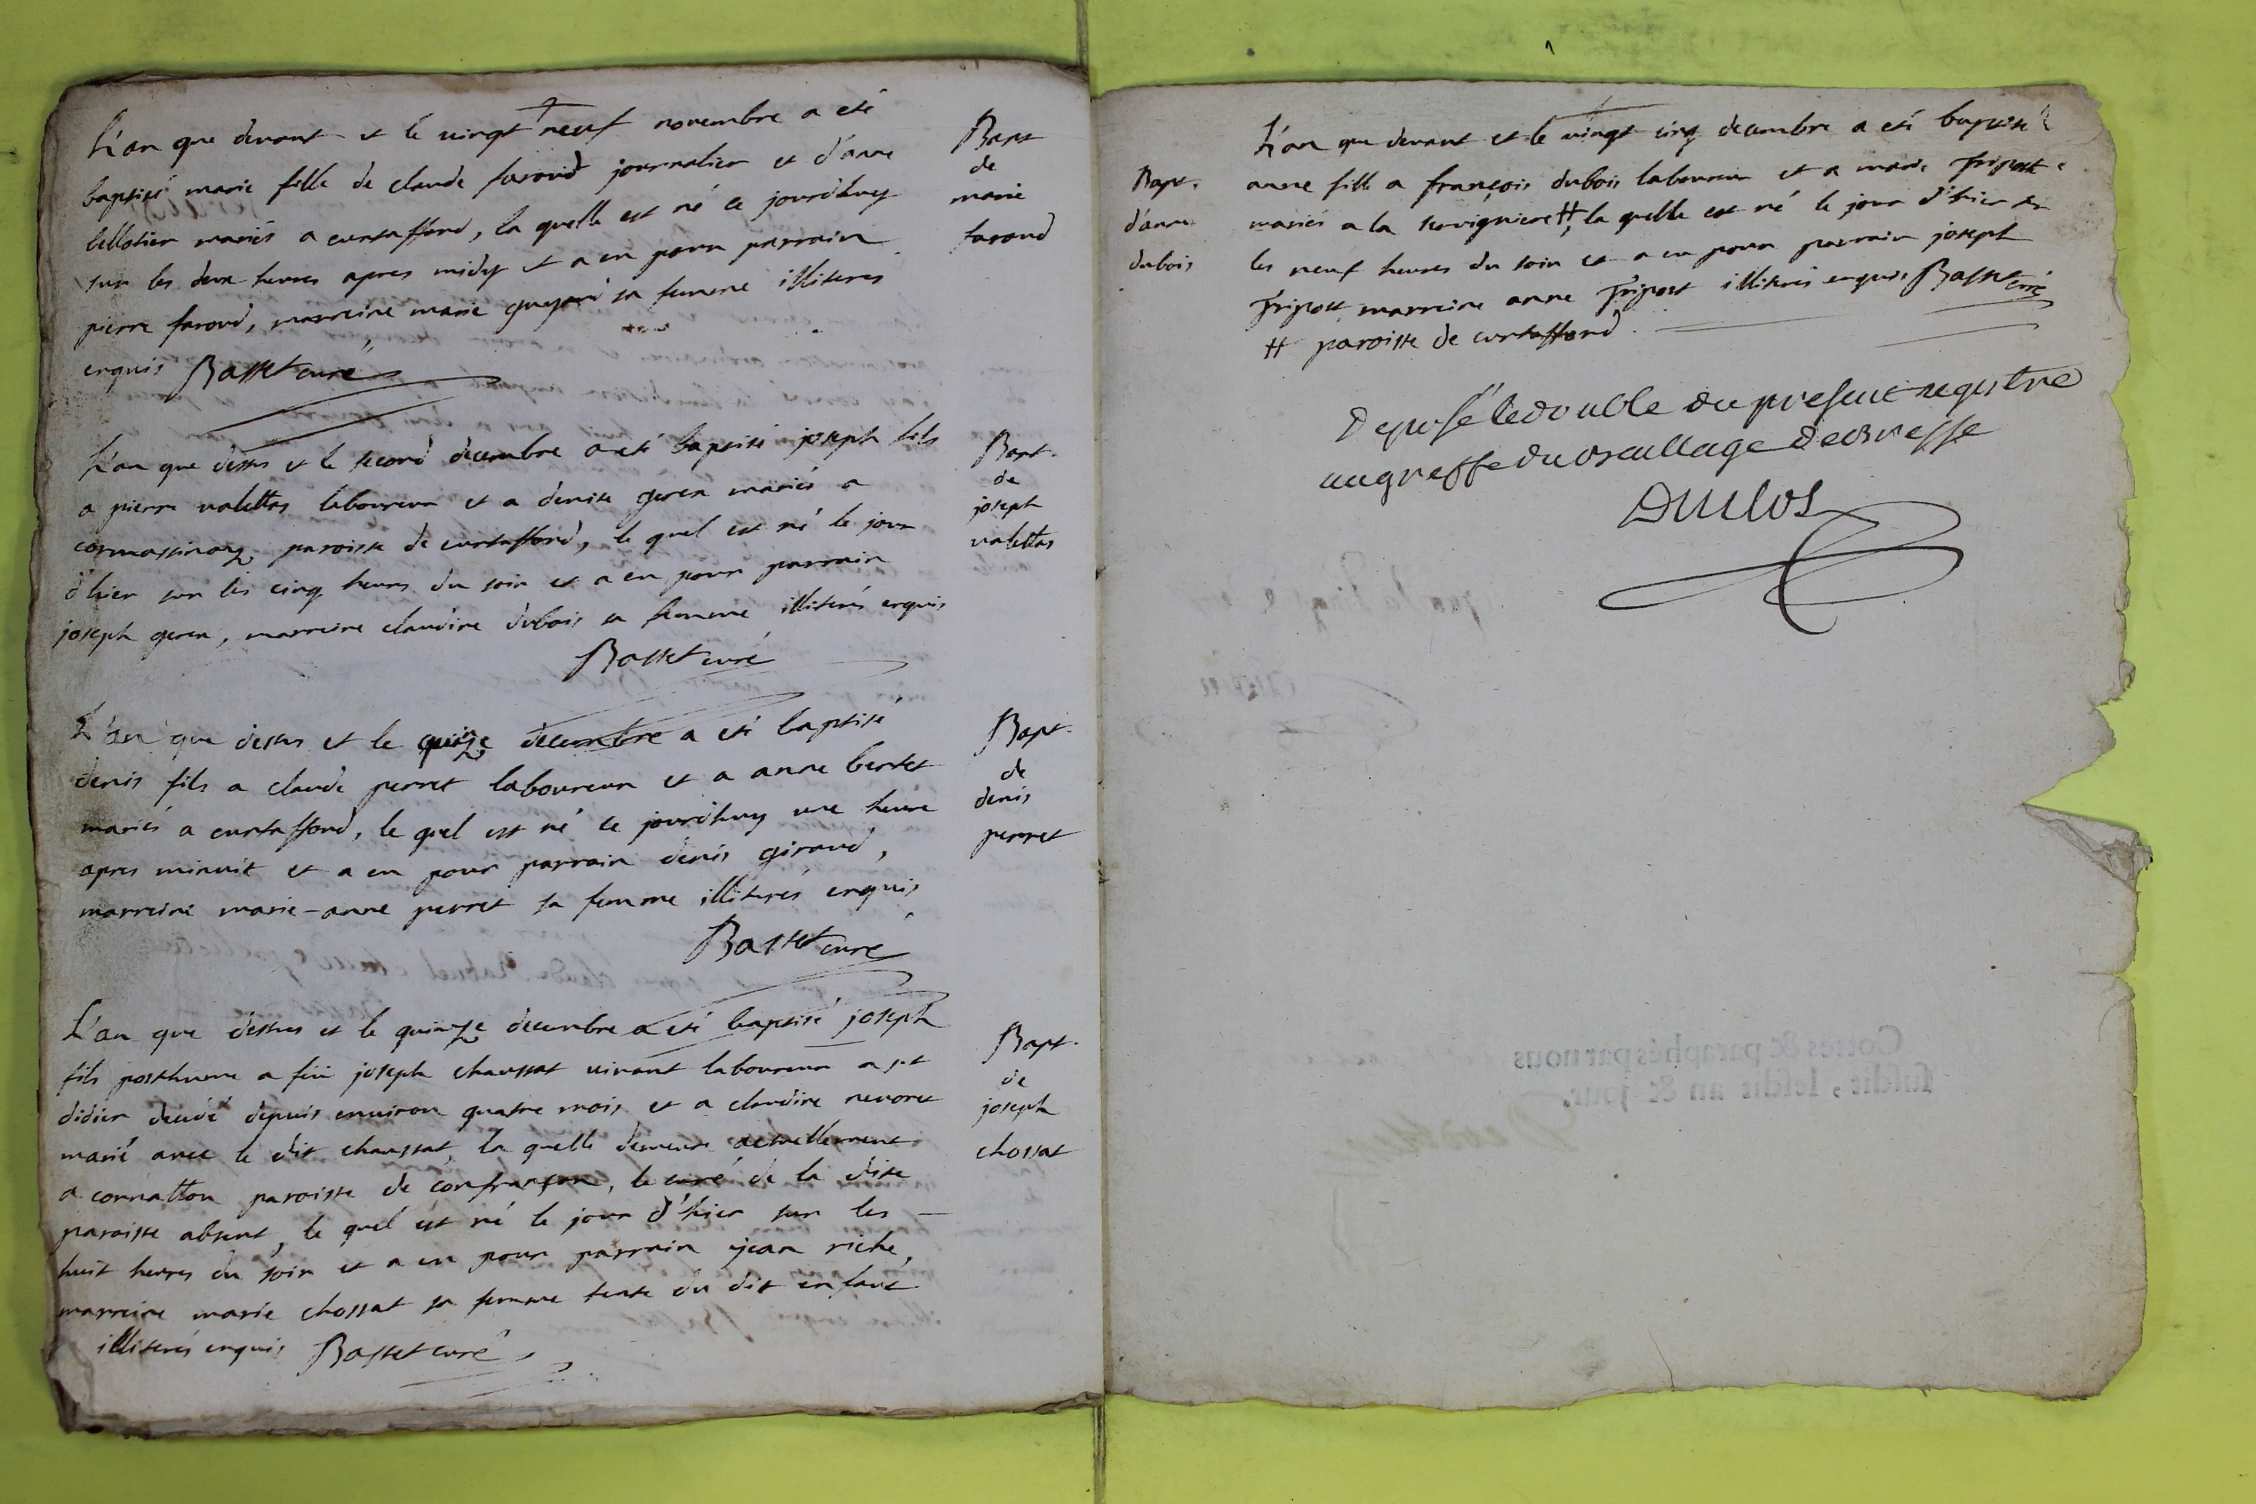 L'an que devant et le vingt neuf novembre a eté
baptisé marie fille de claude farond journalier et d'anne
lellotier mariés a curtaffond, la quelle est né ce jourdhuy
sur les deux heures apres midy et a eu pour parrain
pierre farond, marreine marie guyard sa femme illiterés
enquis Basset curé
Bapt
de
marie
farond
L'an que dessus et le second decembre a eté baptisé joseph fils
a pierre valettas laboureur et a denise geren mariés a
cormassinarg paroisse de curtaffond, le quel est né le jour
d'hier sur les cinq heures du soir et a eu pour parrain
joseph geren, marreine claudine dubois sa femme illiterés enquis
Basset curé
Bapt.
de
joseph
valettas
L'an que dessus et le quinze decembre a eté baptisé
denis fils a claude perret laboureur et a anne bertet
mariés a curtaffond, le quel est né ce jourdhuy une heure
apres minuit et a eu pour parrain denis giraud,
marreine marie-anne perret sa femme illiterés enquis
Basset curé
Bapt.
de
denis
perret
L'an que dessus et le quinze decembre a eté baptisé joseph
fils posthume a feu joseph chaussat vivant laboureur a st
didier decedé depuis environ quatre mois et a claudine nevoret
marié avec le dit chaussat, la quelle demeure actuellement
a cornatton paroisse de confrançon, le curé de la dite
paroisse absent, le quel est né le jour d'hier sur les
huit heures du soir et a eu pour parrain jean riche,
marreine marie chossat sa femme tente du dit enfant
illiterés enquis Basset curé
Bapt.
de
joseph
chossat
L'an que devant et le vingt cinq decembre a eté baptisé
anne fille a françois dubois laboureur et a marie fripost
mariés a la servigniere #, la quelle est né le jour d'hier sur
les neuf heures du soir et a eu pour parrain joseph
fripost marreine anne fripost illiterés enquis Basset curé
# paroisse de curtaffond
Bapt.
d'anne
dubois
Deposé le double du present registre
au greffe du Baillage de Bresse
Duclos
Cottés & paraphés par nous
susdit, lesdits an & jour.